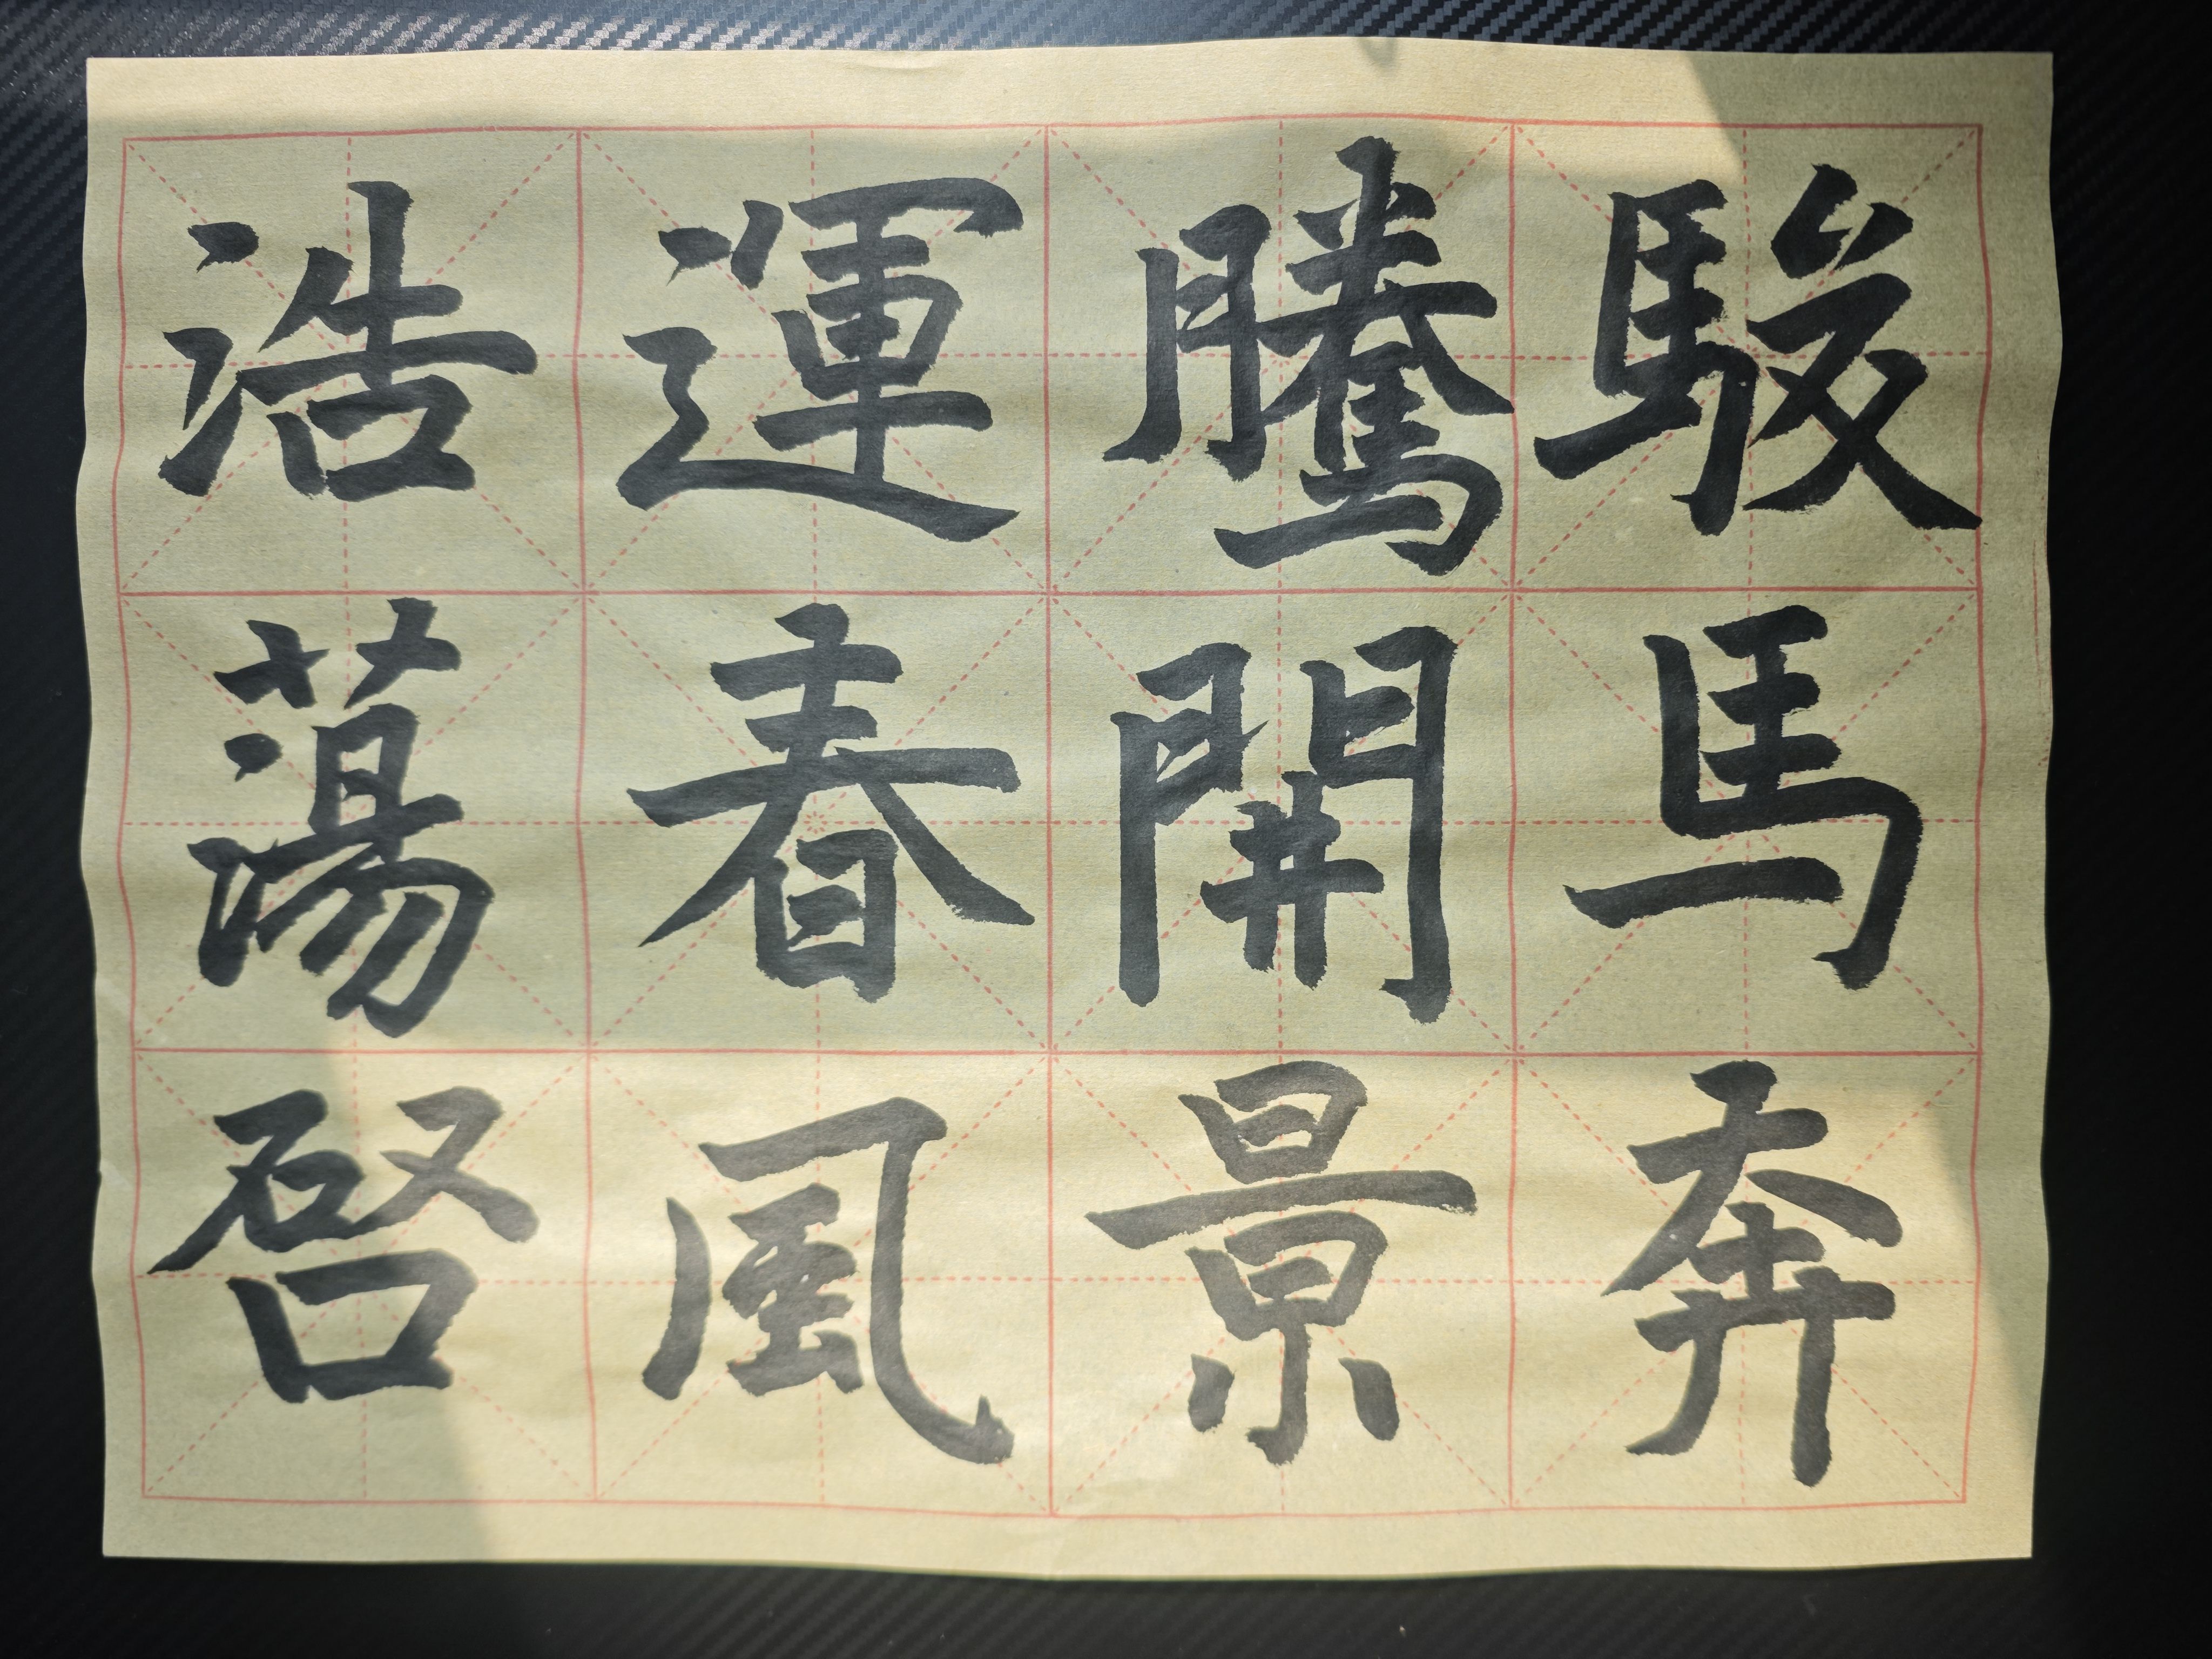 駿馬奔
騰開景
運春風
浩蕩啓